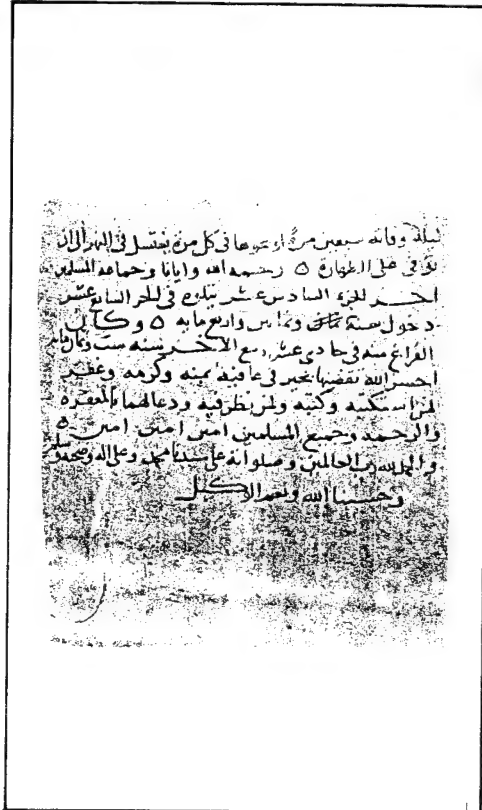 ليلة وفاته سبعين مرة في كل مرة يغتسل في النهر الى ان
توفي على الطهارة ه رحمه الله وايانا وجماعة المسلمين
اخـــر الجزء السادس عشر يتلوه في الجزء السابع عشر
دخول سنة واربع مايه ه وكان
الفراغ منه في حادي عشر ربيع الاخـر سنه ست
احسن الله تقضيها بخير في عافية بمنه وكرمه وغفر
لمن وكتبه ولمن نظر فيه ودعا لهما بالمغفرة
والرحمه وجميع المسلمين امين امين امين ه
والحمد لله رب العالمين وصلواته على سيدنا محمد وعلى اله وصحبه وسلم
وحسبنا الله ونعم الوكـيل